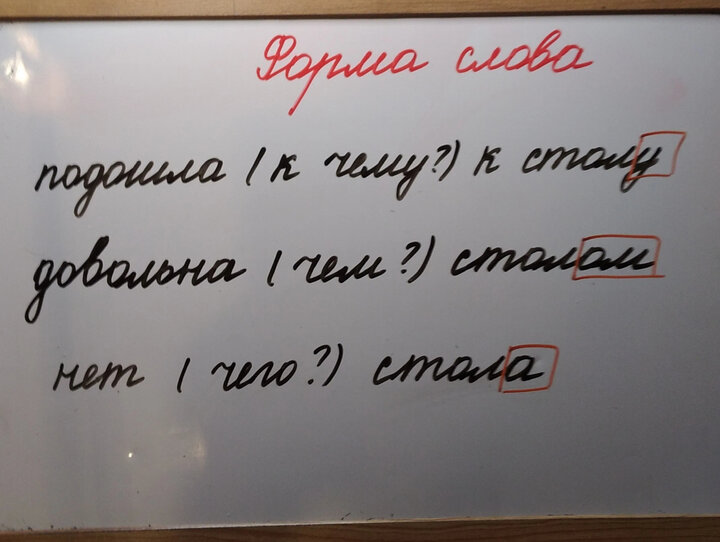 Форма слова
подошла (к чему?) к столу
довольна (чем?) столом
нет (чего?) стола